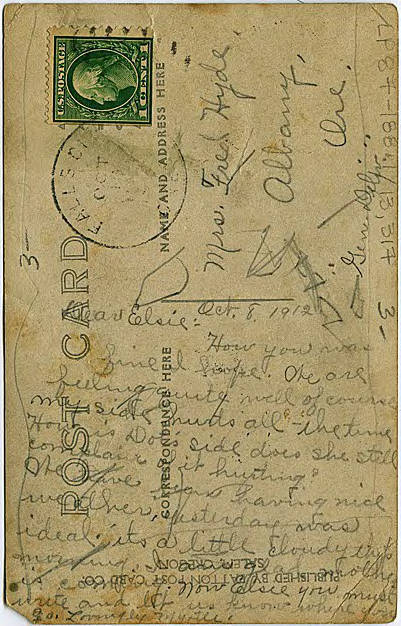 U.S. POSTAGE
1 CENT 1
FALLS C
OCT
POST CARD
NAME AND ADDRESS HERE
CORRESPONDENCE HERE
PUBLISHED BY PATTON POST CARD CO.
SALEM, OREGON
Mrs. Fred Hyde,
Albany,
Ore.
Gen Del'y.
3-
3-
Oct. 8, 1912
Dear Elsie:
How you was
fine I hope. We are
feeling quite well of course
my side hurts all the time
How is side does she still
complain it hurting?
We have been having nice
weather, yesterday was
ideal. its a little cloudy this
morning.
is Now Elsie you must
write and let us know where you